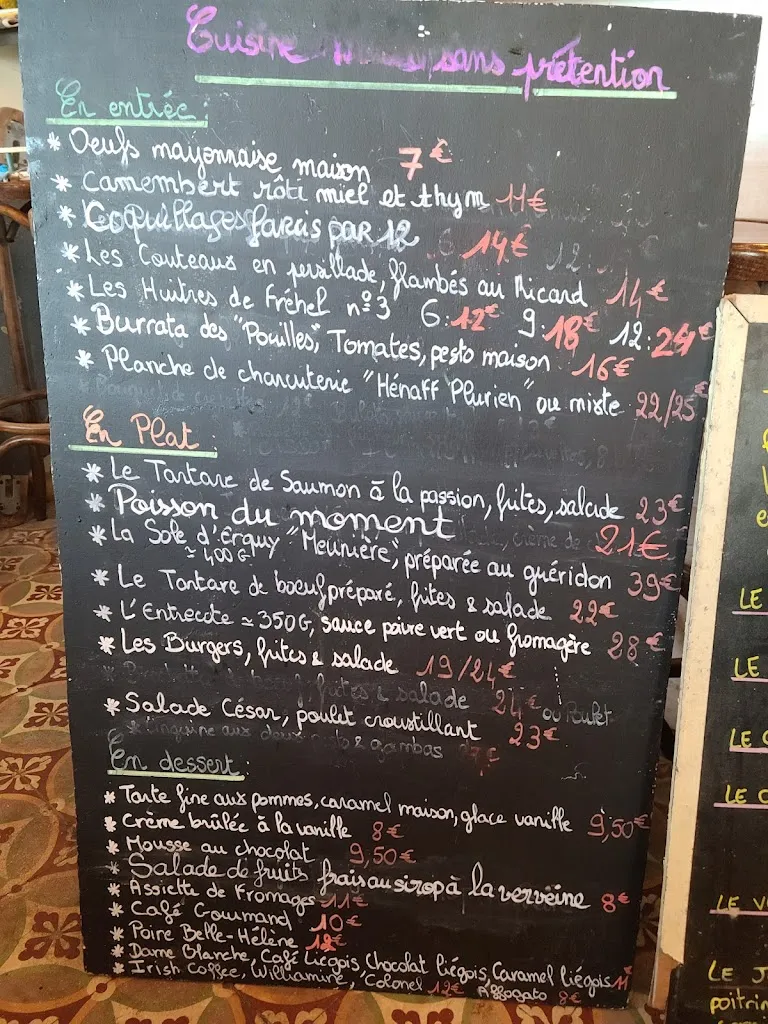 Cuisine sans prétention
En entrée :
* Oeufs mayonnaise maison 7€
* Camembert rôti miel et thym 11€
* Coquillages farcis par 12 14€
* Les Couteaux en persillade, flambés au Ricard 14€
* Les Huîtres de Fréhel n°3 6:12€ 9:18€ 12:24€
* Burrata des "Pouilles", Tomates, pesto maison 16€
* Planche de charcuterie "Hénaff Plurien" ou mixte 22/25€
En Plat :
* Le Tartare de Saumon à la passion, frites, salade 23€
* Poisson du moment 21€
* La Sole d'Erquy "Meunière", préparée au guéridon 39€
≃ 400G
* Le Tartare de boeuf préparé, frites & salade 22€
* L'Entrecote ≃ 350G, sauce poivre vert ou fromagère 28€
* Les Burgers, frites & salade 19/24€
frites & salade 24€ ou Poulet
* Salade César, poulet croustillant 23€
* Linguine aux deux & gambas
En dessert :
* Tarte fine aux pommes, caramel maison, glace vanille 9,50€
* Crème brûlée à la vanille 8€
* Mousse au chocolat 9,50€
* Salade de fruits frais au sirop à la verveine 8€
* Assiette de Fromages 11€
* Café Gourmand 10€
* Poire Belle-Hélène 12€
* Dame Blanche, Café Liégois, Chocolat liégois, Caramel liégois 11€
* Irish Coffee, Williamine, "Colonel 12€ Affogato 8€
LE
LE
LE C
LE C
LE V
LE J
poitrin